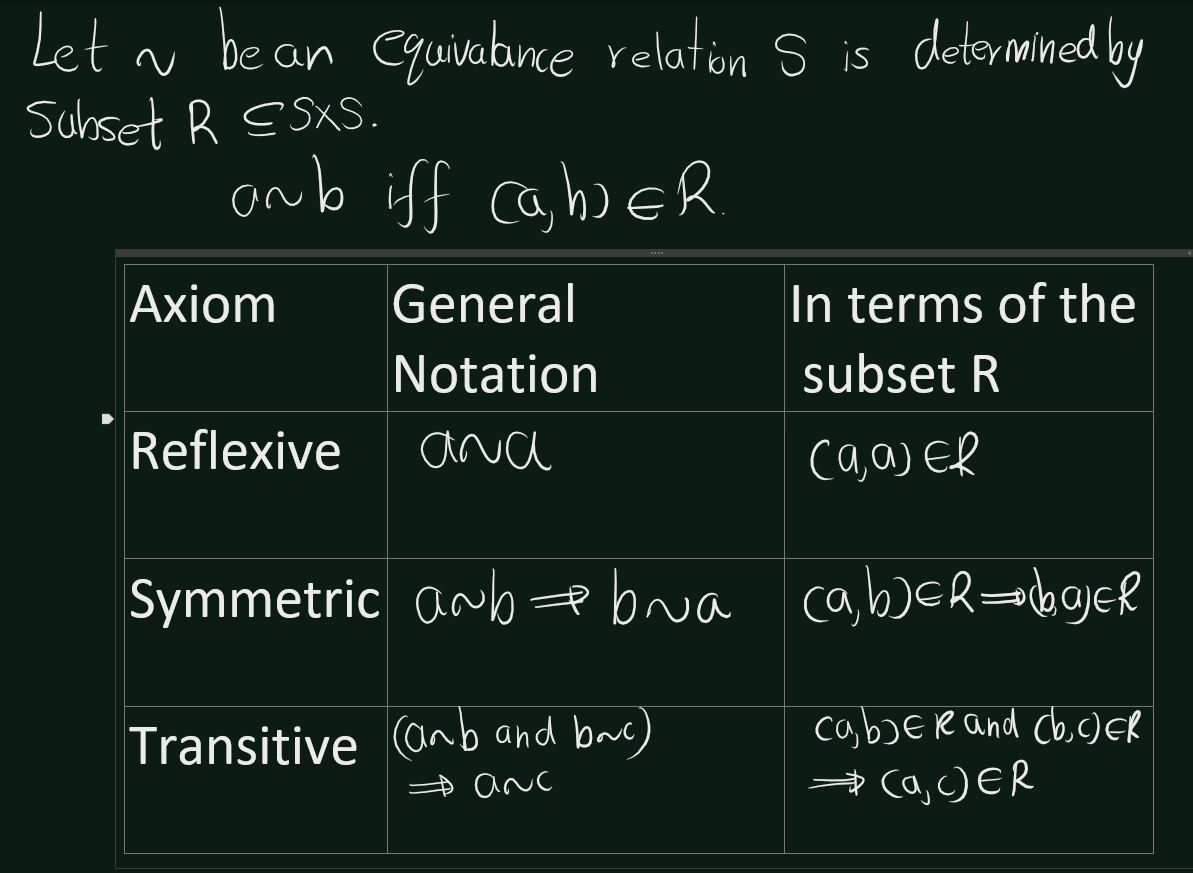 Let ~ be an equivalance relation S is determined by
Subset R ⊆ S×S.
a~b iff (a,b) ∈ R.
Axiom
General
Notation
In terms of the
subset R
Reflexive
a~a
(a,a) ∈ R
Symmetric
a~b ⟹ b~a
(a,b) ∈ R ⟹ (b,a) ∈ R
Transitive
(a~b and b~c)
⟹ a~c
(a,b) ∈ R and (b,c) ∈ R
⟹ (a,c) ∈ R